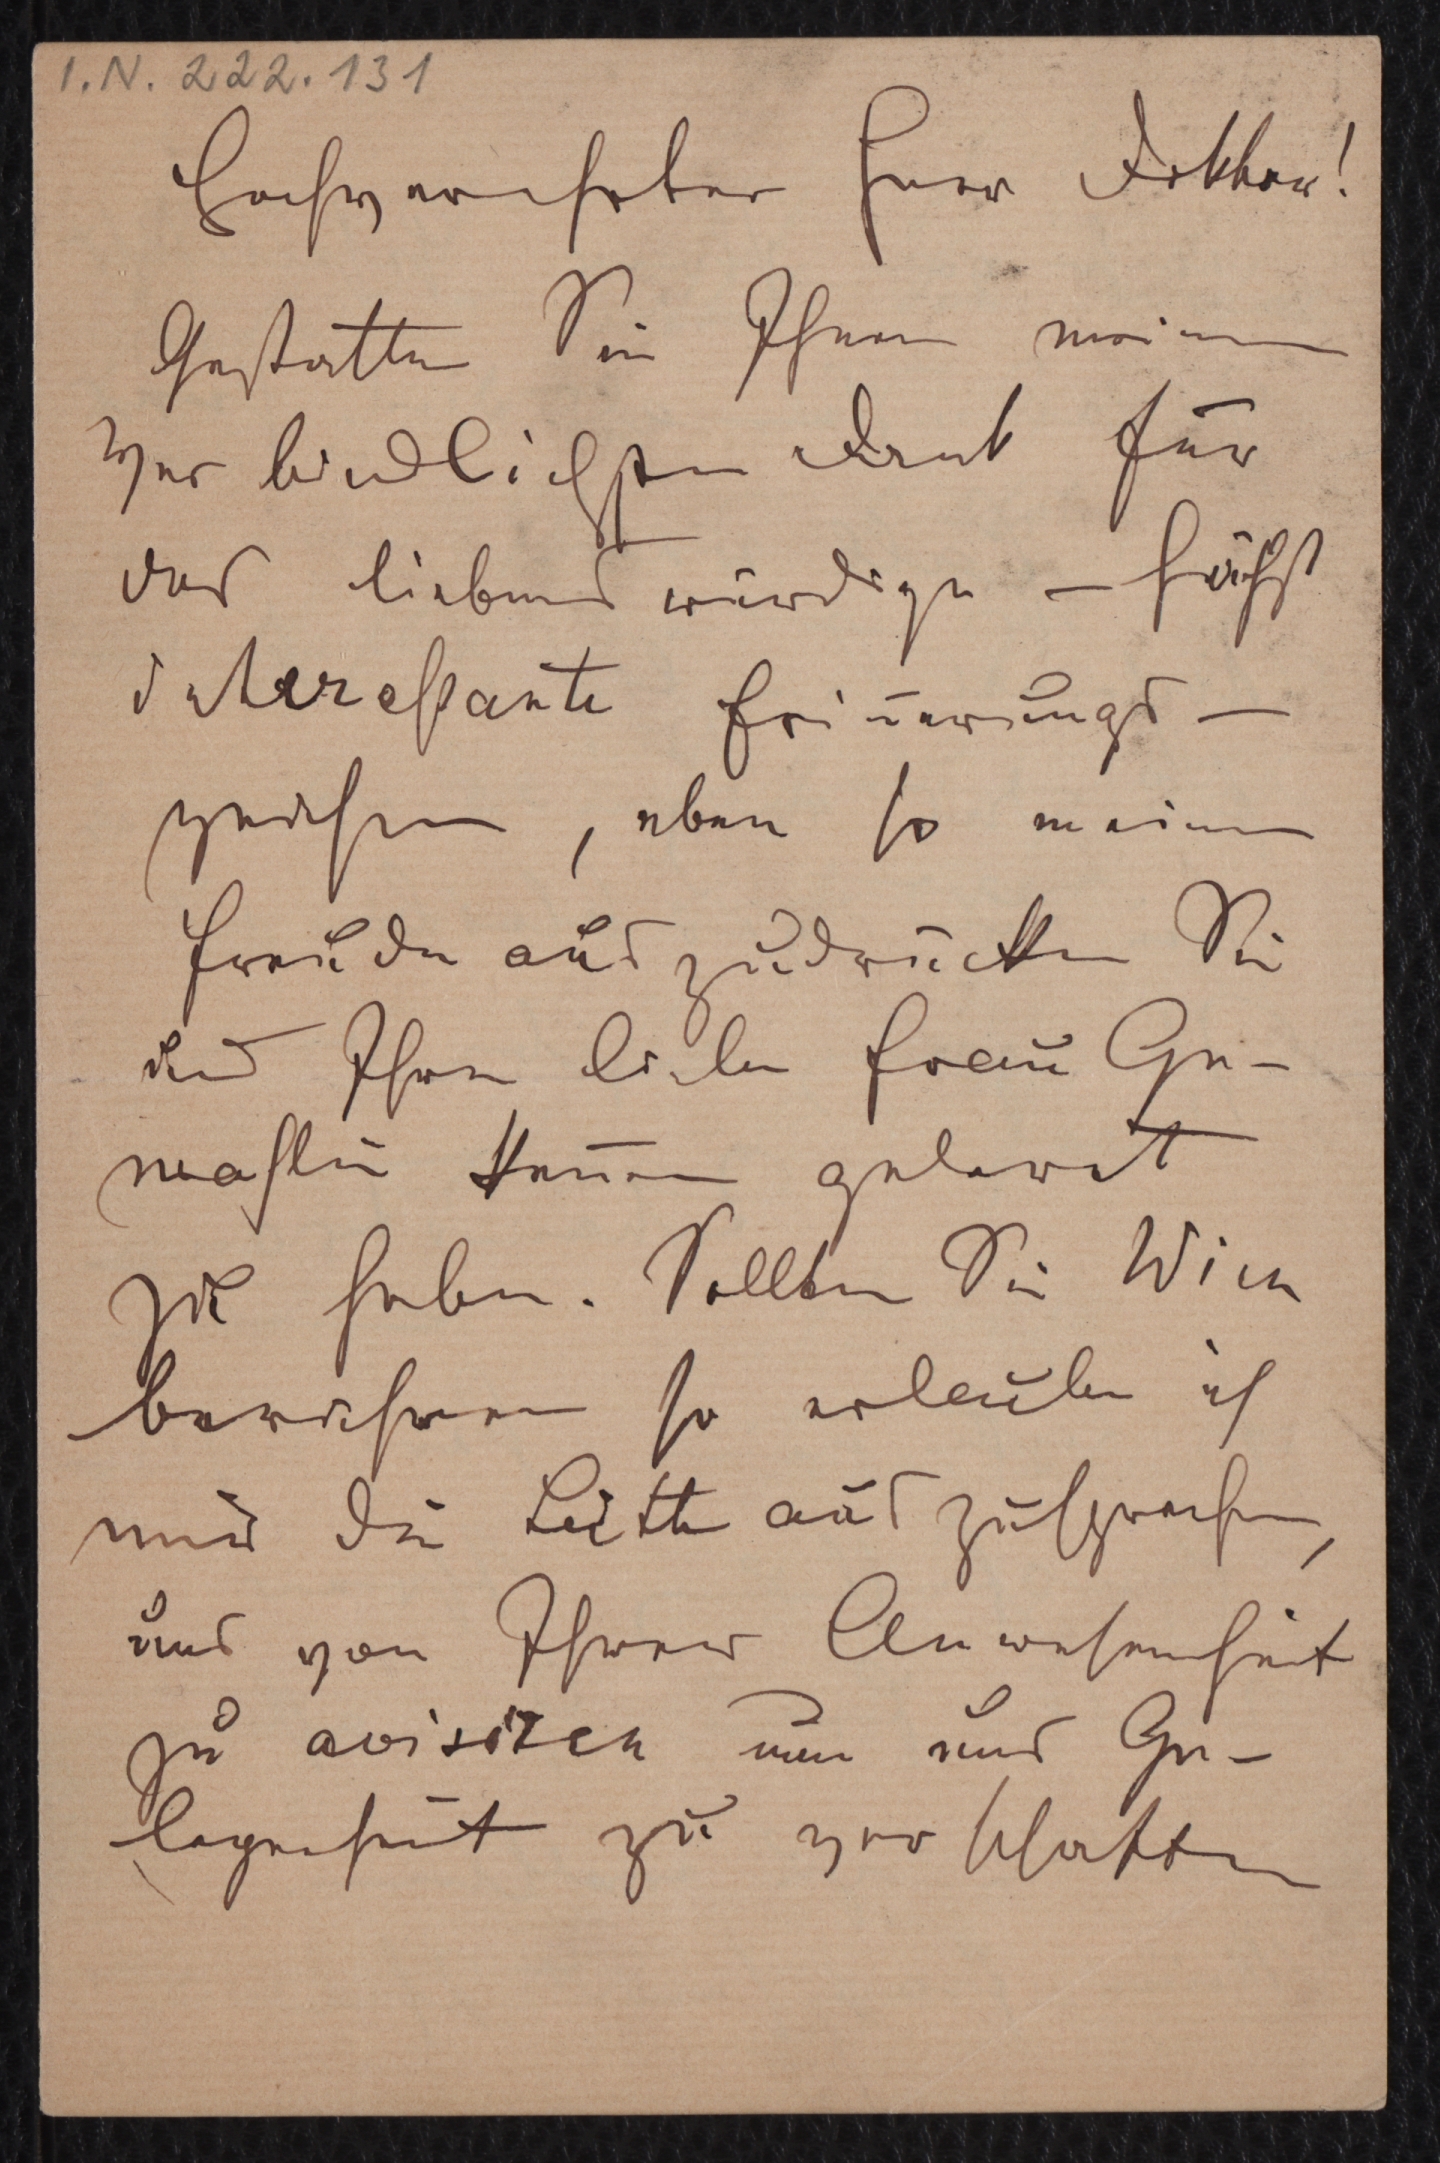 I.N. 222.131
Hochverehrter Herr Doktor!
Gestatten Sie Ihnen meinen
verbindlichsten Dank für
das liebenswürdige – höchst
interessante Erinerungs-
zeichen, eben so meine
Freude auszudrücken Sie
und Ihre liebe Frau Ge-
mahlin kennen gelernt
zu haben. Sollten Sie Wien
berühren so erlaube ich
mir die Bitte auszusprechen,
uns von Ihrer Anwesenheit
zu avisiren um uns Ge-
legenheit zu verschaffen